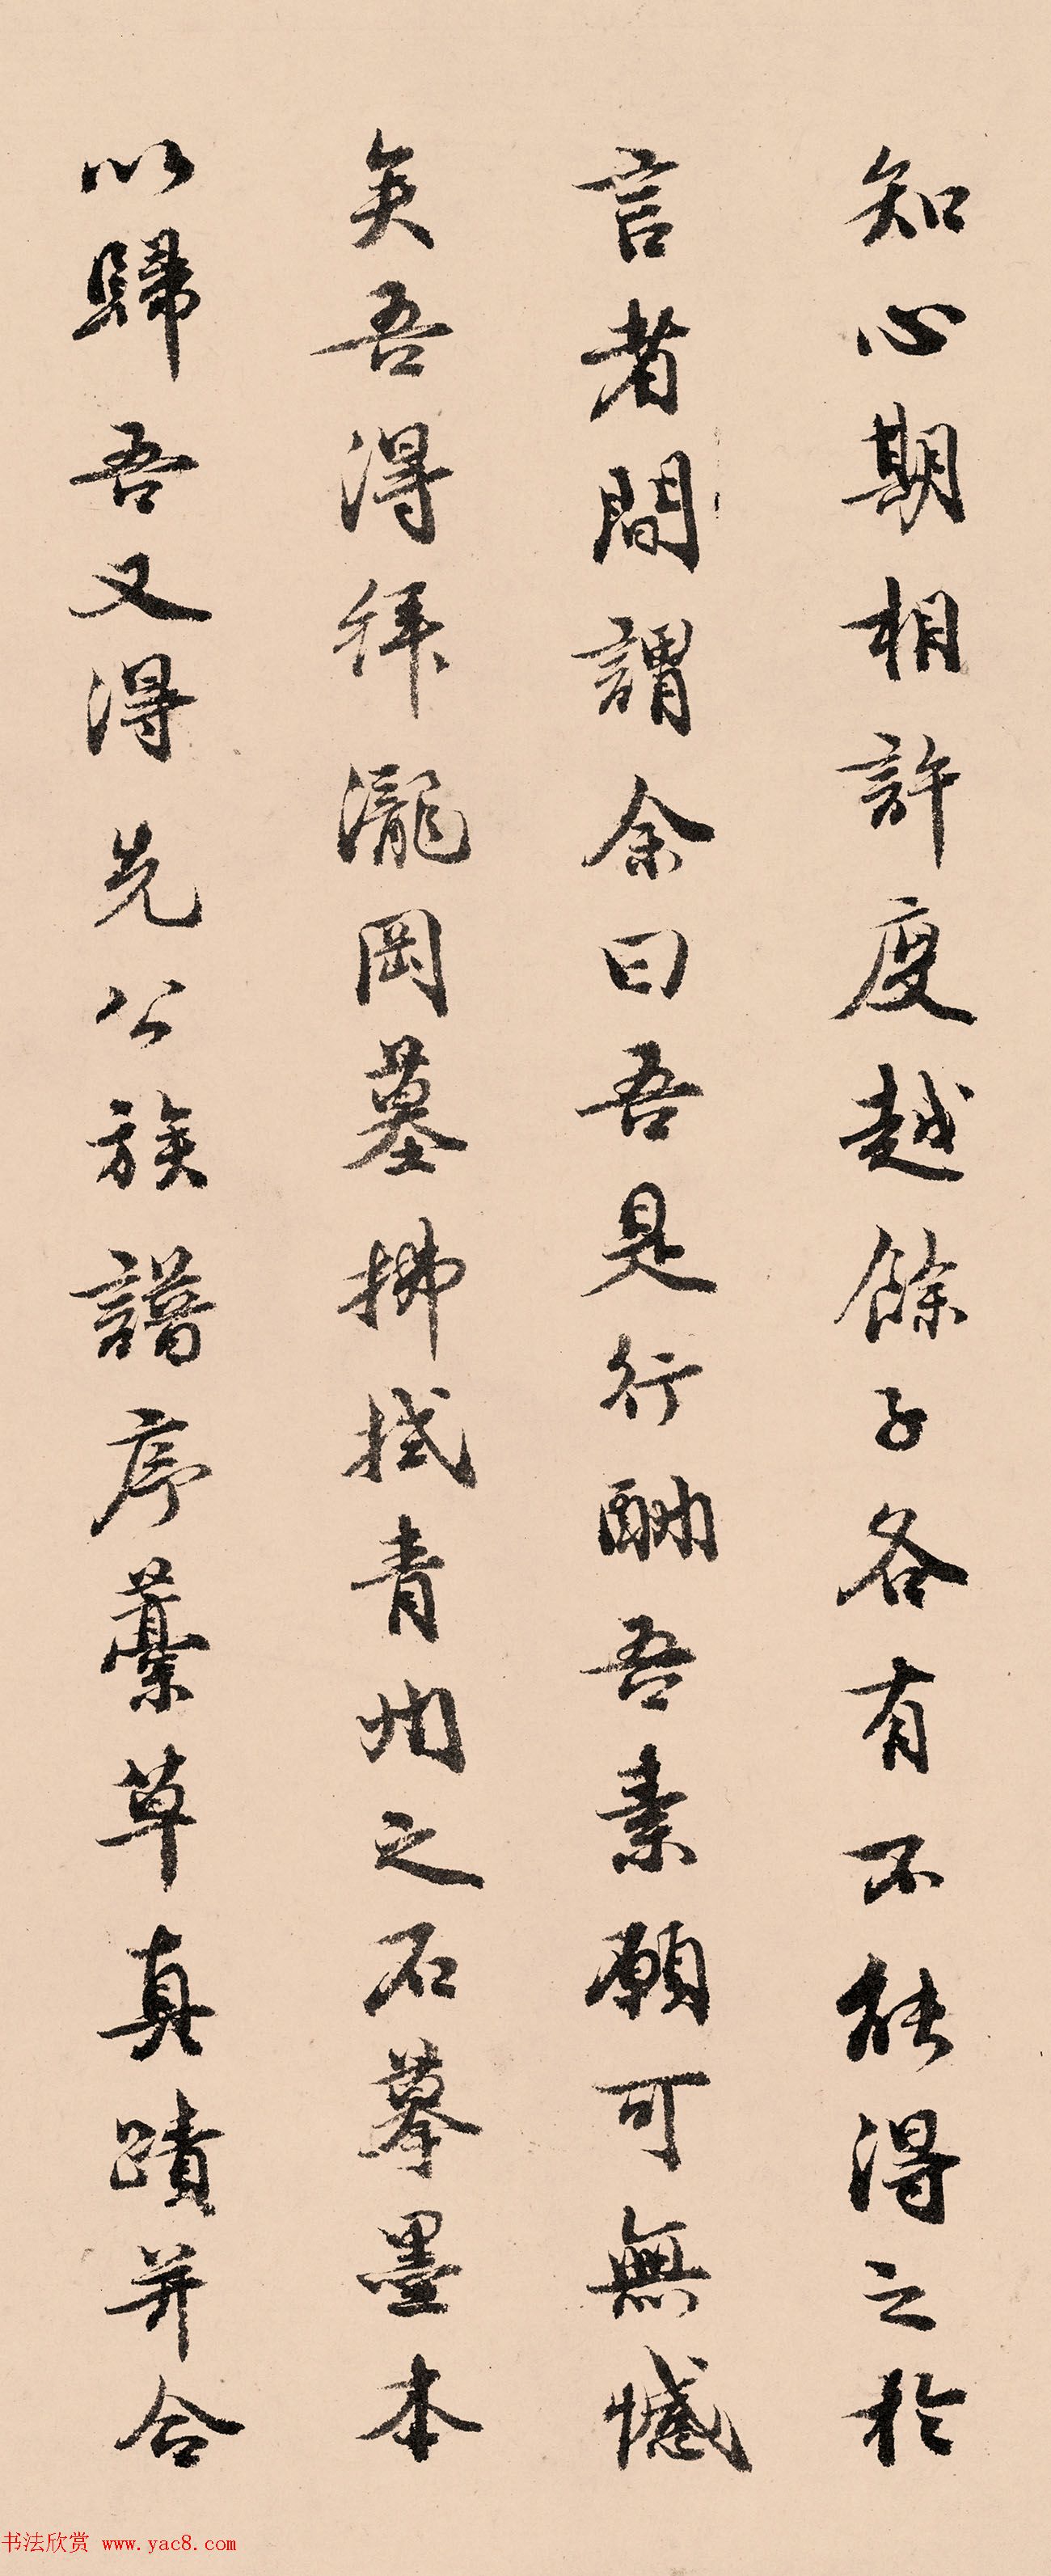 知心期相許度越餘子各有不能得之於
言者間謂余曰吾是行酬吾素願可無憾
矣吾得拜瀧岡墓拂拭青州之石摹墨本
以歸吾又得先公族譜序藁草真蹟并合
书法欣赏 www.yac8.com